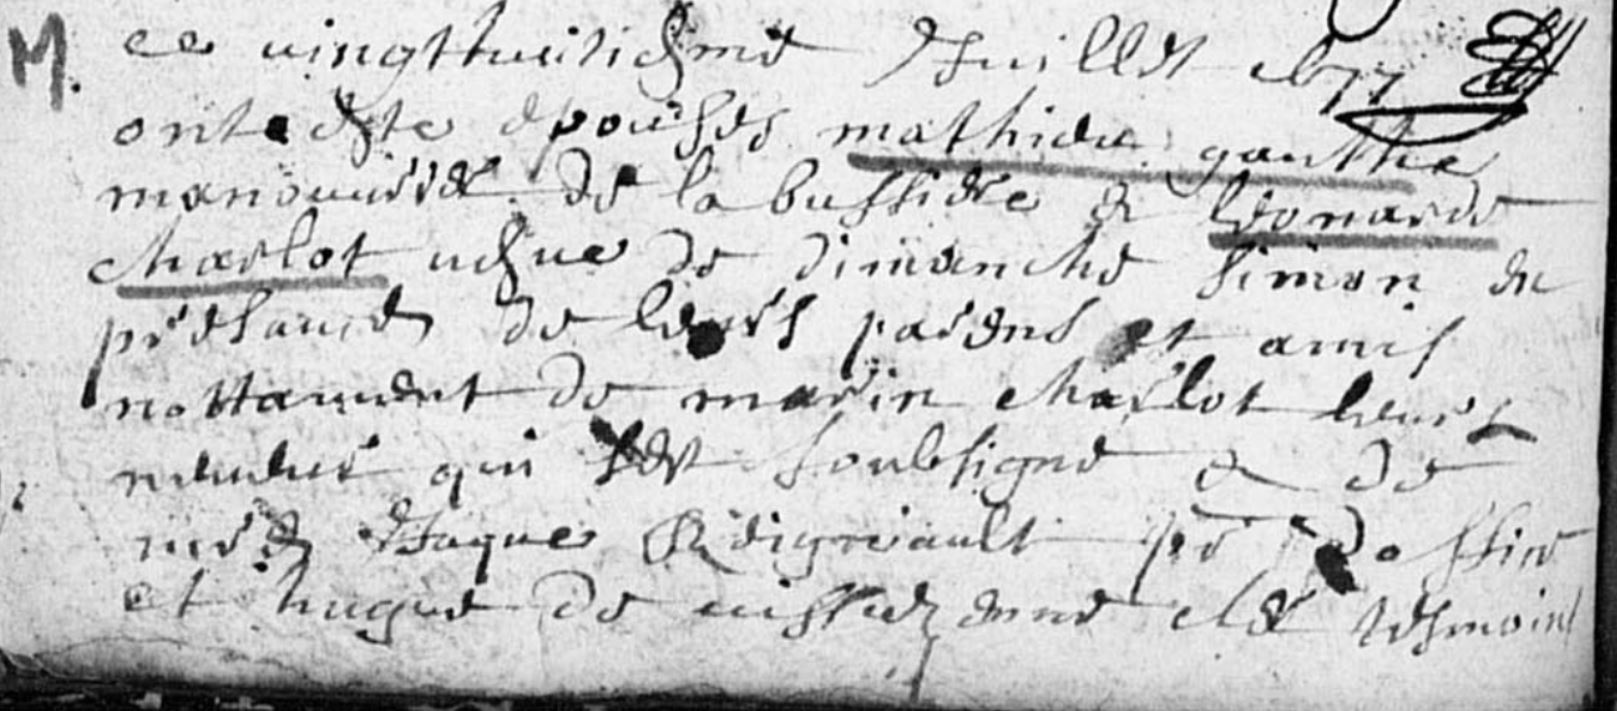 M. ce vingthuitiesme Juillet 1677
ont esté épousés mathieu gauthe
manouvrier de la bussiere & Leonarde
charlot vesve de dimanche simon en
présance de leurs parens et amis
nottamment de marin charlot leurs
qui s'est soubsigné & de
Jaque
et hugue de tesmoins